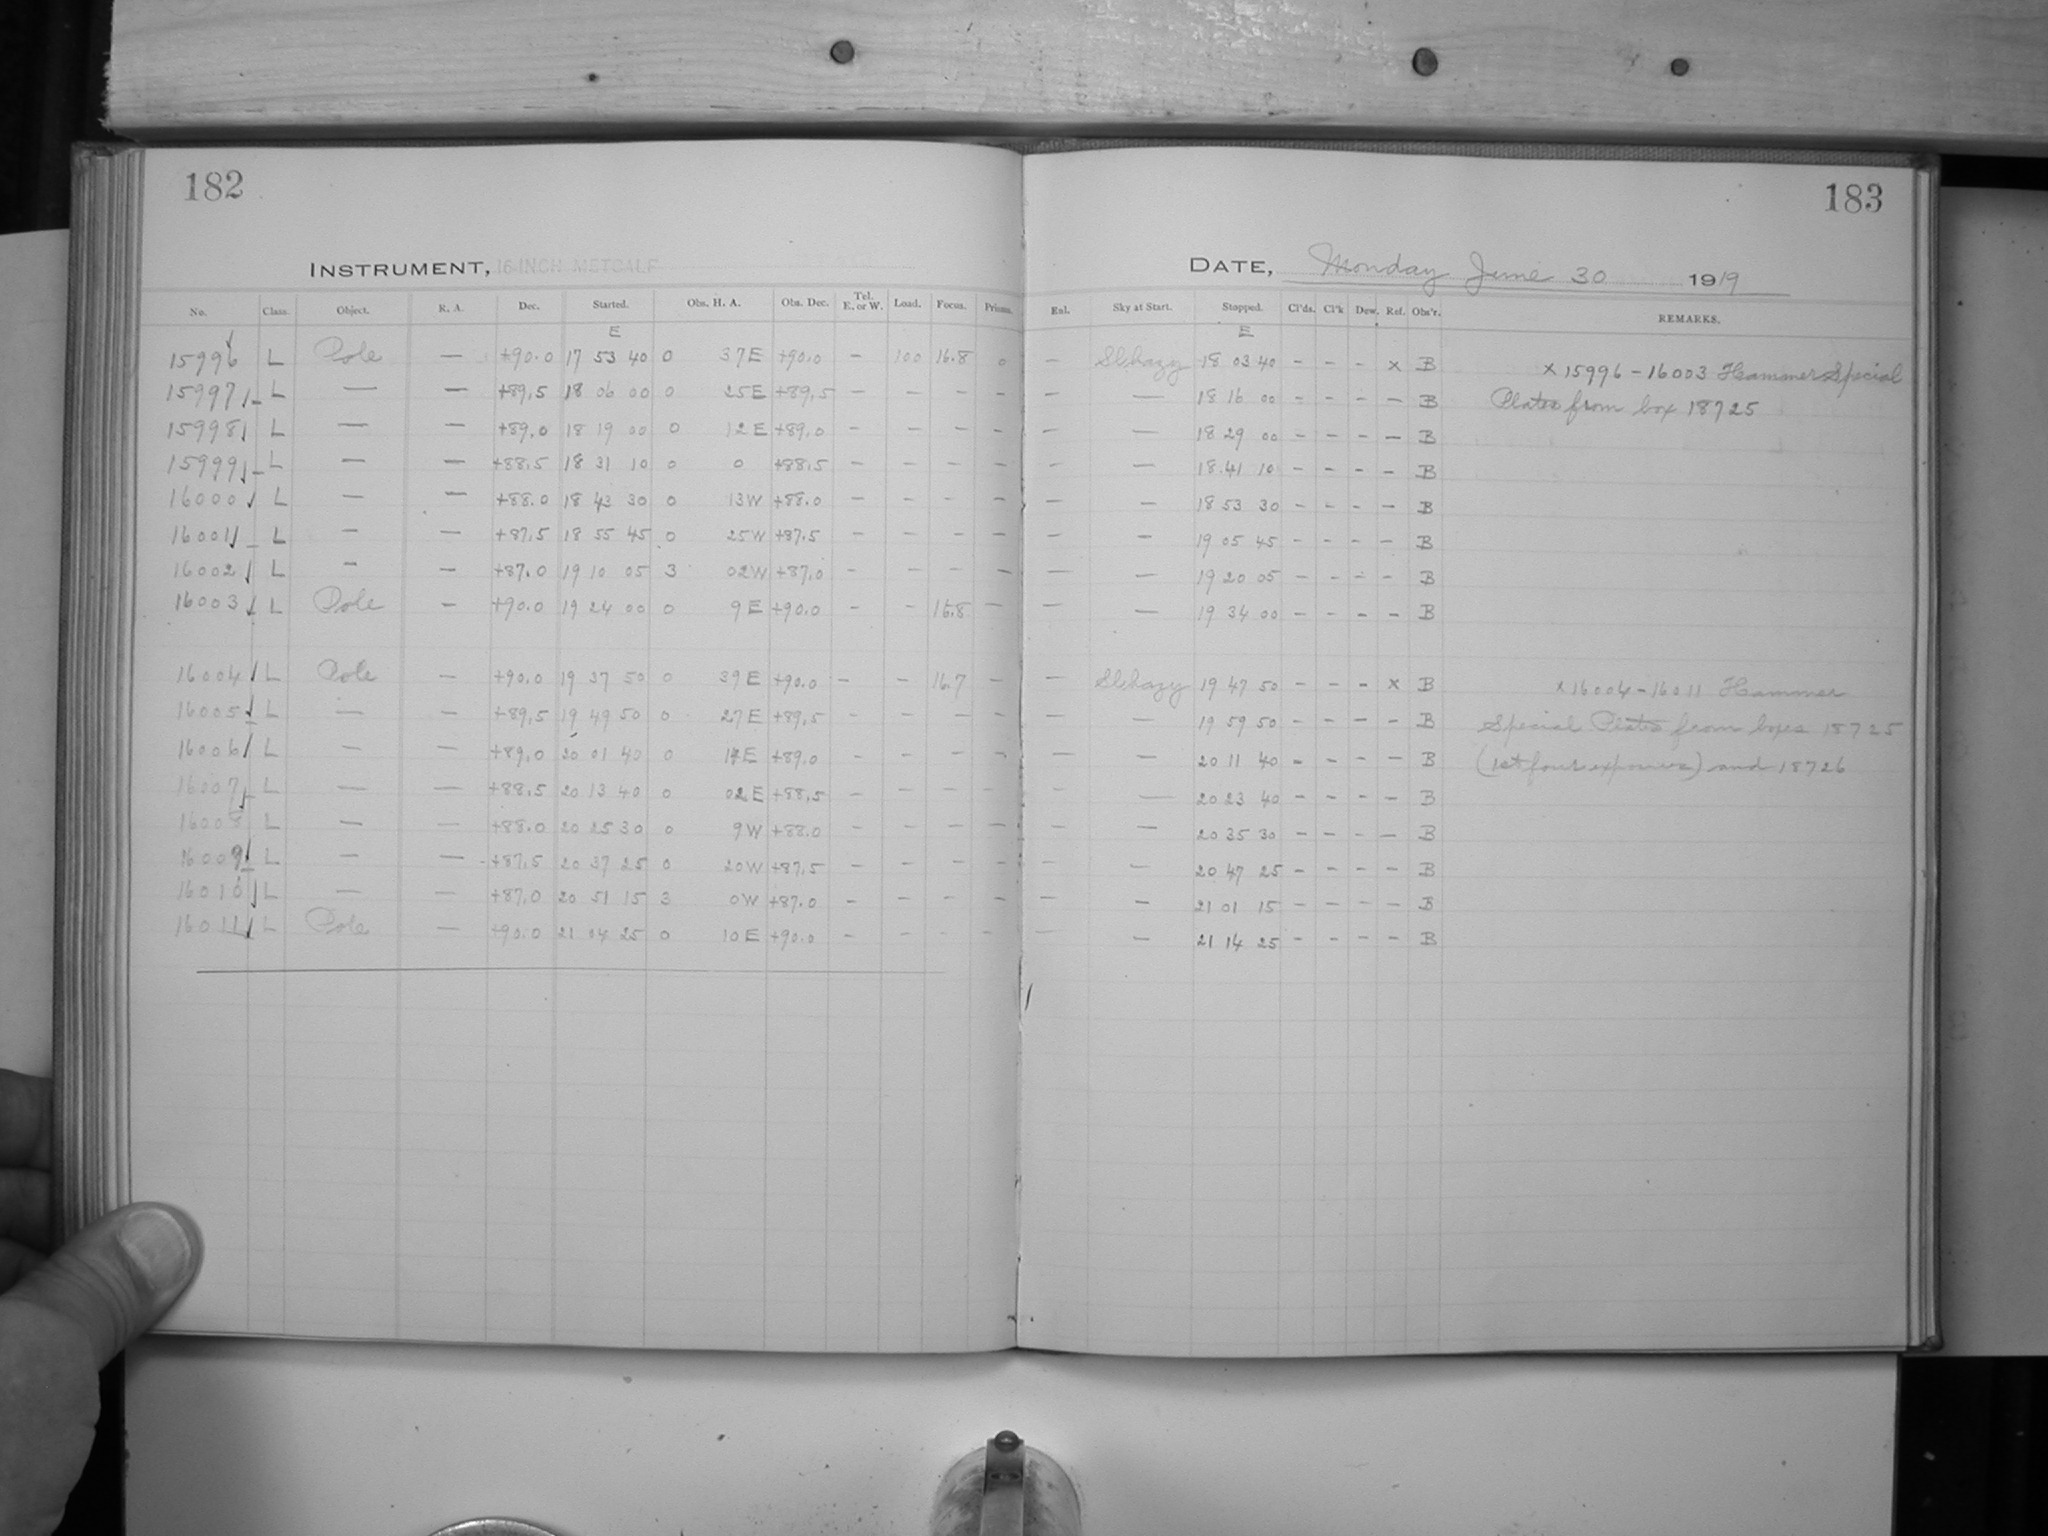 182
183
INSTRUMENT, 16-INCH METCALF
DATE, Monday June 30 1919
No. Class. Object. R. A. Dec. Started. Obs. H. A. Obs. Dec. Tel. E. or W. Load. Focus. Prisms. Eal. Sky at Start. Stopped. Cl'ds. Cl'k Dew. Ref. Obs'r. REMARKS.
E E
15996 L Pole — +90.0 17 53 40 0 37E +90.0 – 100 16.8 0 — Sl.hazy 18 03 40 – – – x B x 15996-16003 Hammer Special
15997 L — — +89.5 18 06 00 0 25E +89.5 – – – – — — 18 16 00 – – – – B Plates from box 18725
15998 L — — +89.0 18 19 00 0 12E +89.0 – – – – — — 18 29 00 – – – – B
15999 L — — +88.5 18 31 10 0 0 +88.5 – – – – — — 18.41 10 – – – – B
16000 L — — +88.0 18 43 30 0 13W +88.0 – – – – — — 18 53 30 – – – – B
16001 L — — +87.5 18 55 45 0 25W +87.5 – – – – — — 19 05 45 – – – – B
16002 L — — +87.0 19 10 05 3 02W +87.0 – – – – — — 19 20 05 – – – – B
16003 L Pole — +90.0 19 24 00 0 9E +90.0 – – 16.8 – — — 19 34 00 – – – – B
16004 L Pole — +90.0 19 37 50 0 39E +90.0 – – 16.7 – — Sl.hazy 19 47 50 – – – x B x 16004-16011 Hammer
16005 L — — +89.5 19 49 50 0 27E +89.5 – – – – — — 19 59 50 – – – – B Special Plates from boxes 18725
16006 L — — +89.0 20 01 40 0 14E +89.0 – – – – — — 20 11 40 – – – – B (1st four exposures) and 18726
16007 L — — +88.5 20 13 40 0 02E +88.5 – – – – — — 20 23 40 – – – – B
16008 L — — +88.0 20 25 30 0 9W +88.0 – – – – — — 20 35 30 – – – – B
16009 L — — +87.5 20 37 25 0 20W +87.5 – – – – — — 20 47 25 – – – – B
16010 L — — +87.0 20 51 15 3 0W +87.0 – – – – — 21 01 15 – – – – B
16011 L Pole — +90.0 21 04 25 0 10E +90.0 – – – – — — 21 14 25 – – – – B